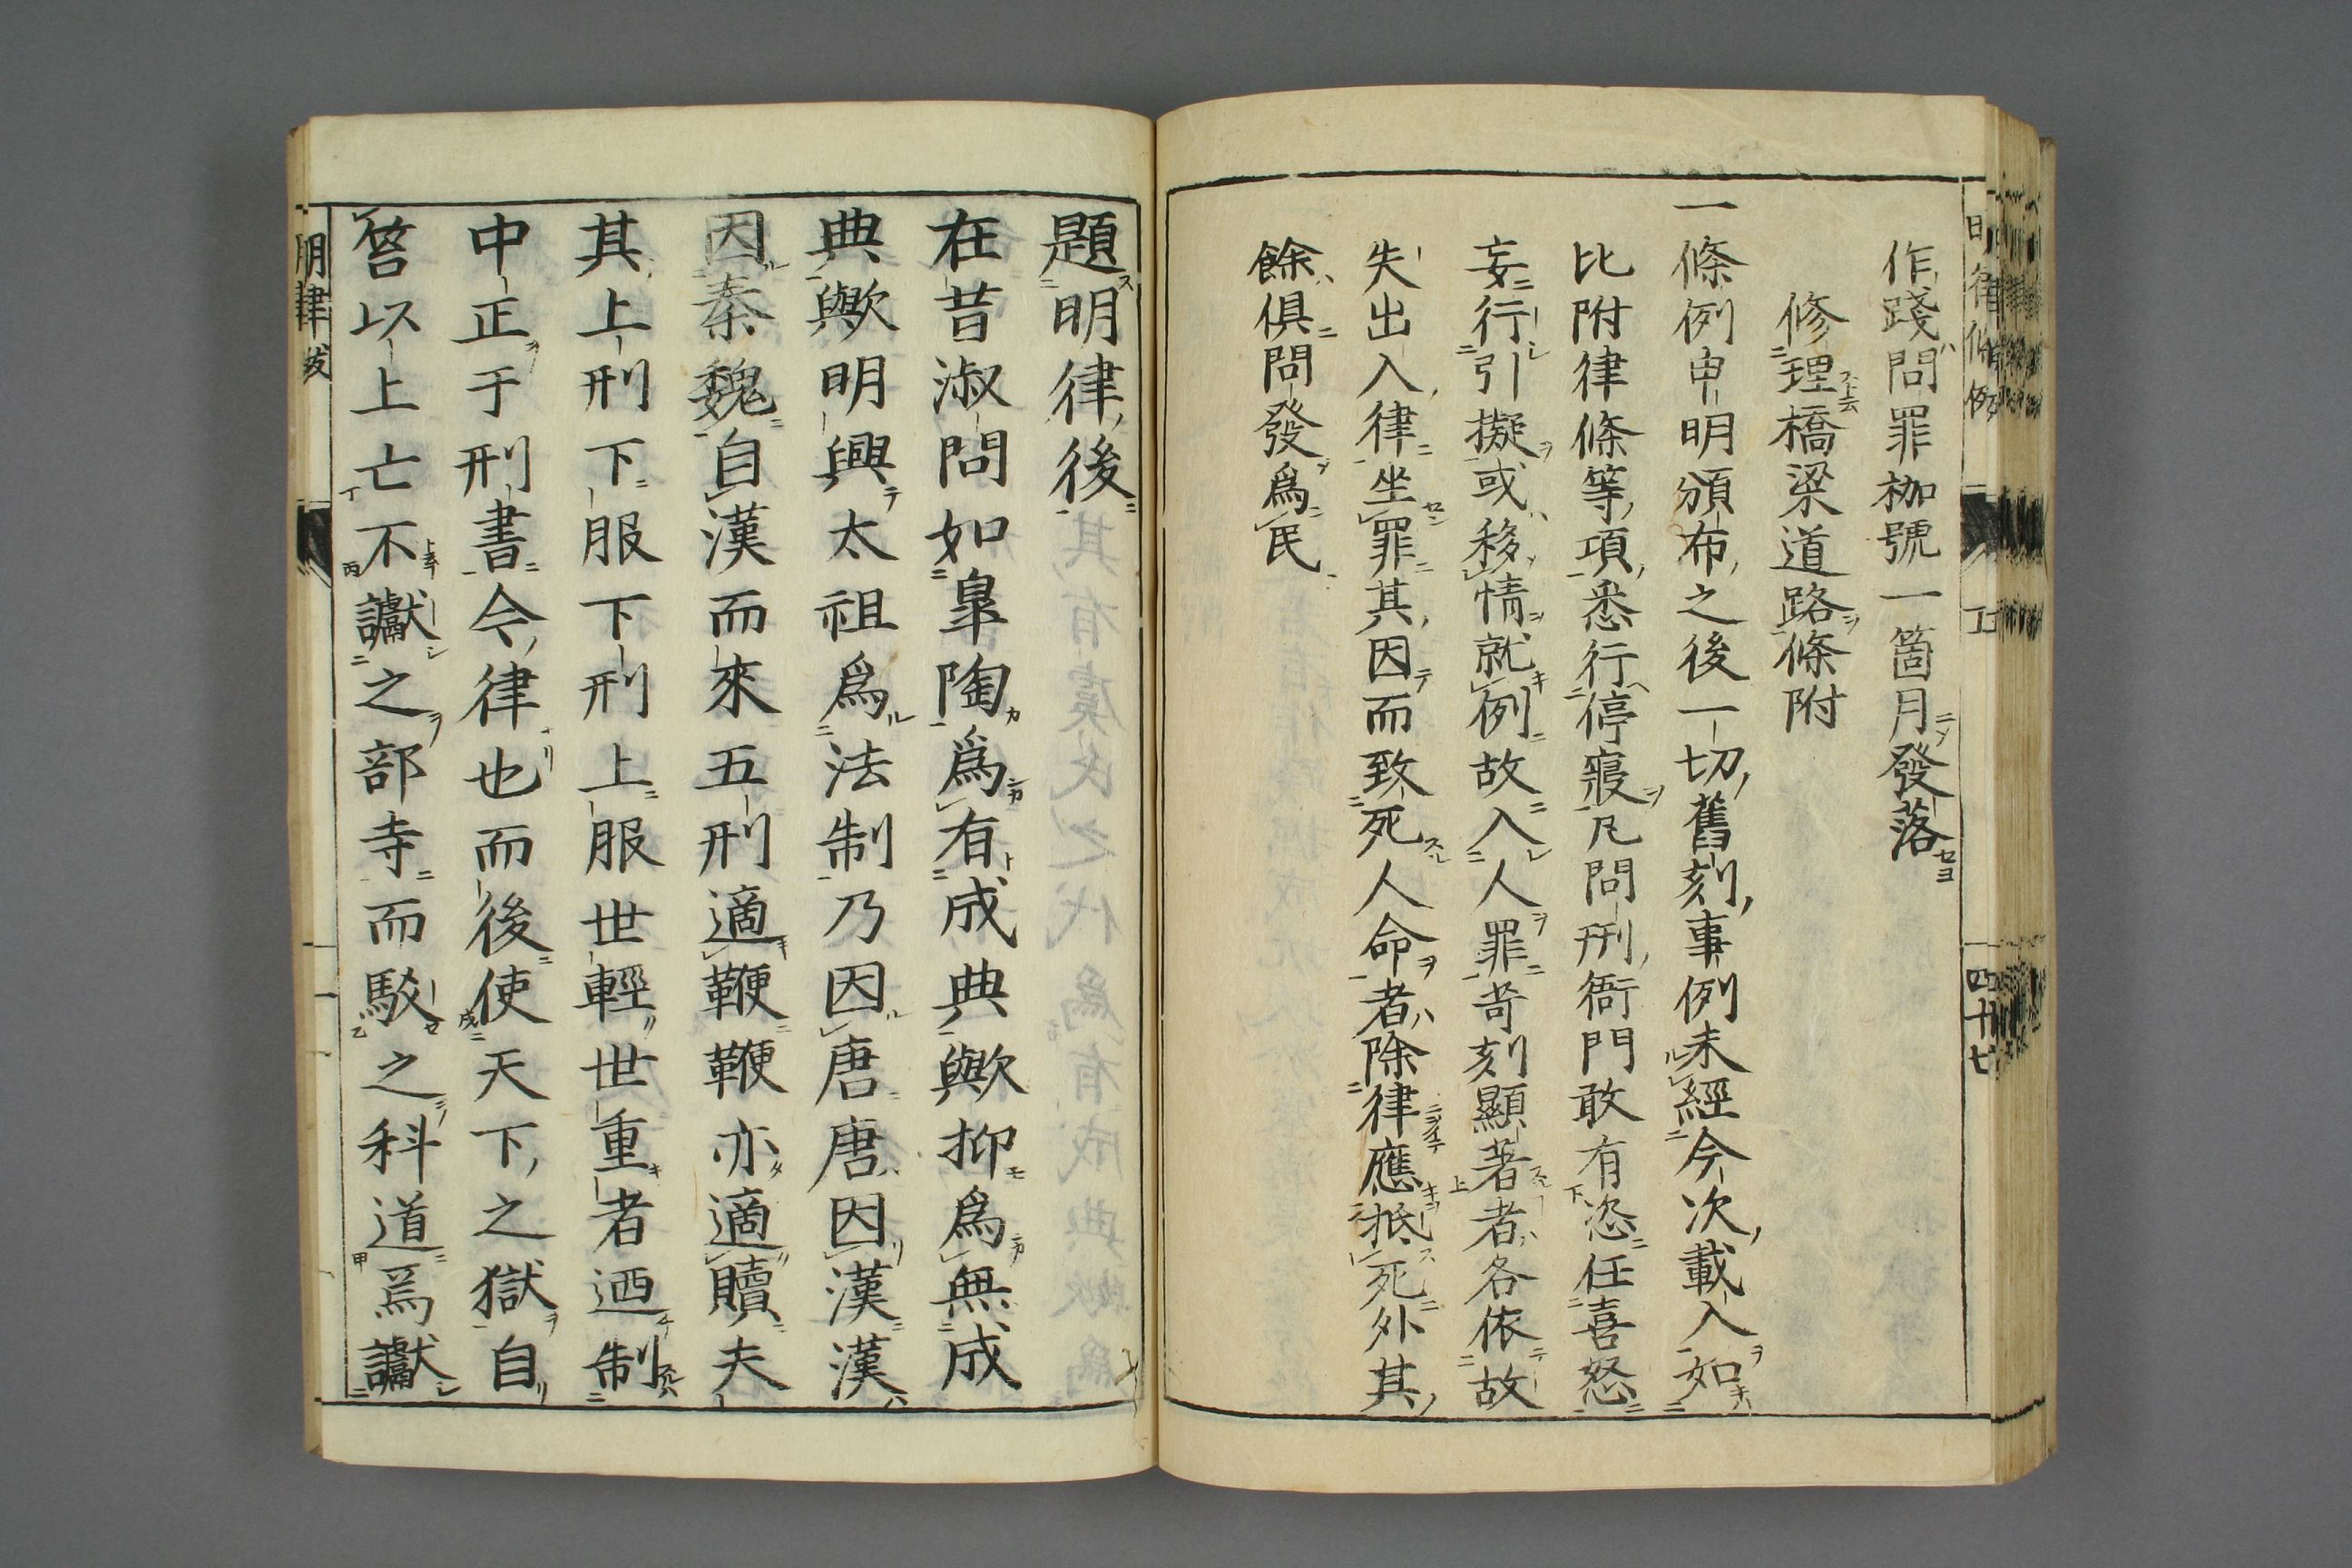 作踐問罪枷號一箇月發落
修理橋梁道路條附
一條例申明頒布之後一切舊刻事例未經今次載入如
比附律條等項悉行停寢凡問刑衙門敢有恣任喜怒
妄行引擬或移情就例故入人罪苛刻顯著者各依故
失出入律坐罪其因而致死人命者除律應抵死外其
餘俱問發爲民
題明律後
在昔淑問如臯陶爲有成典歟抑爲無成
典歟明興太祖爲法制乃因唐唐因漢漢
因秦魏自漢而來五刑適鞭鞭亦適贖夫
其上刑下服下刑上服世輕世重者迺制
中正于刑書今律也而後使天下之獄自
笞以上亡不讞之部寺而駁之科道爲讞
明律跋